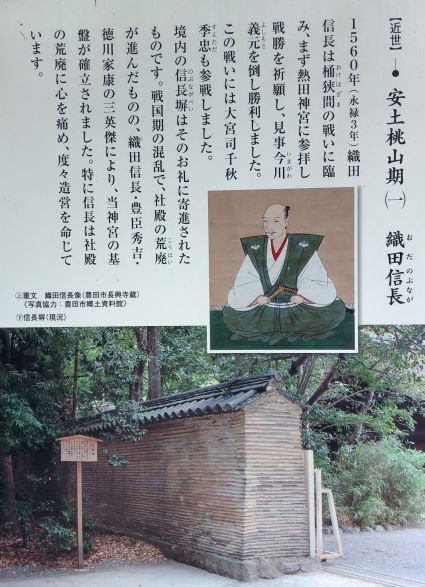 【近世】─● 安土桃山期㈠ 織田信長
おだのぶなが
1560年(永禄3年)織田
信長は桶狭間の戦いに臨
おけはざま
み、まず熱田神宮に参拝し
戦勝を祈願し、見事今川
いまがわ
義元を倒し勝利しました。
よしもと
この戦いには大宮司千秋
季忠も参戦しました。
すえただ
境内の信長塀はそのお礼に寄進された
のぶながべい
ものです。戦国期の混乱で、社殿の荒廃
こうはい
が進んだものの、織田信長・豊臣秀吉・
徳川家康の三英傑により、当神宮の基
盤が確立されました。特に信長は社殿
の荒廃に心を痛め、度々造営を命じて
います。
㊤重文 織田信長像(豊田市長興寺蔵)
(写真協力:豊田市郷土資料館)
㊦信長塀(現況)